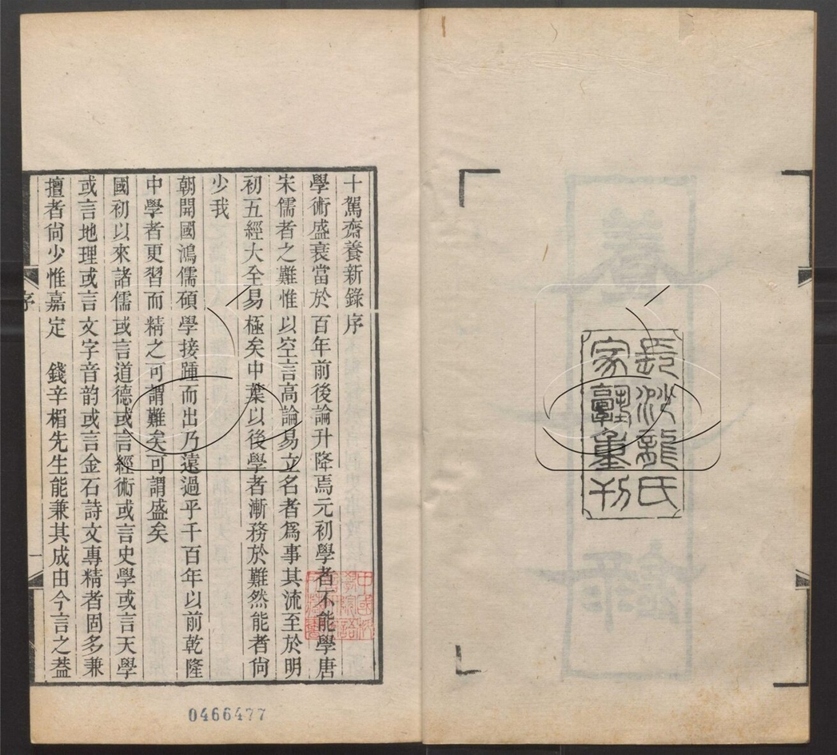 長沙龍氏
家塾重刊
十駕齋養新錄序
學術盛衰當於百年前後論升降焉元初學者不能學唐
宋儒者之難惟以空言高論易立名者爲事其流至於明
初五經大全易極矣中葉以後學者漸務於難然能者尙
少我
朝開國鴻儒碩學接踵而出乃遠過乎千百年以前乾隆
中學者更習而精之可謂難矣可謂盛矣
國初以來諸儒或言道德或言經術或言史學或言天學
或言地理或言文字音韵或言金石詩文專精者固多兼
擅者尙少惟嘉定錢辛楣先生能兼其成由今言之葢
序
一
0466477